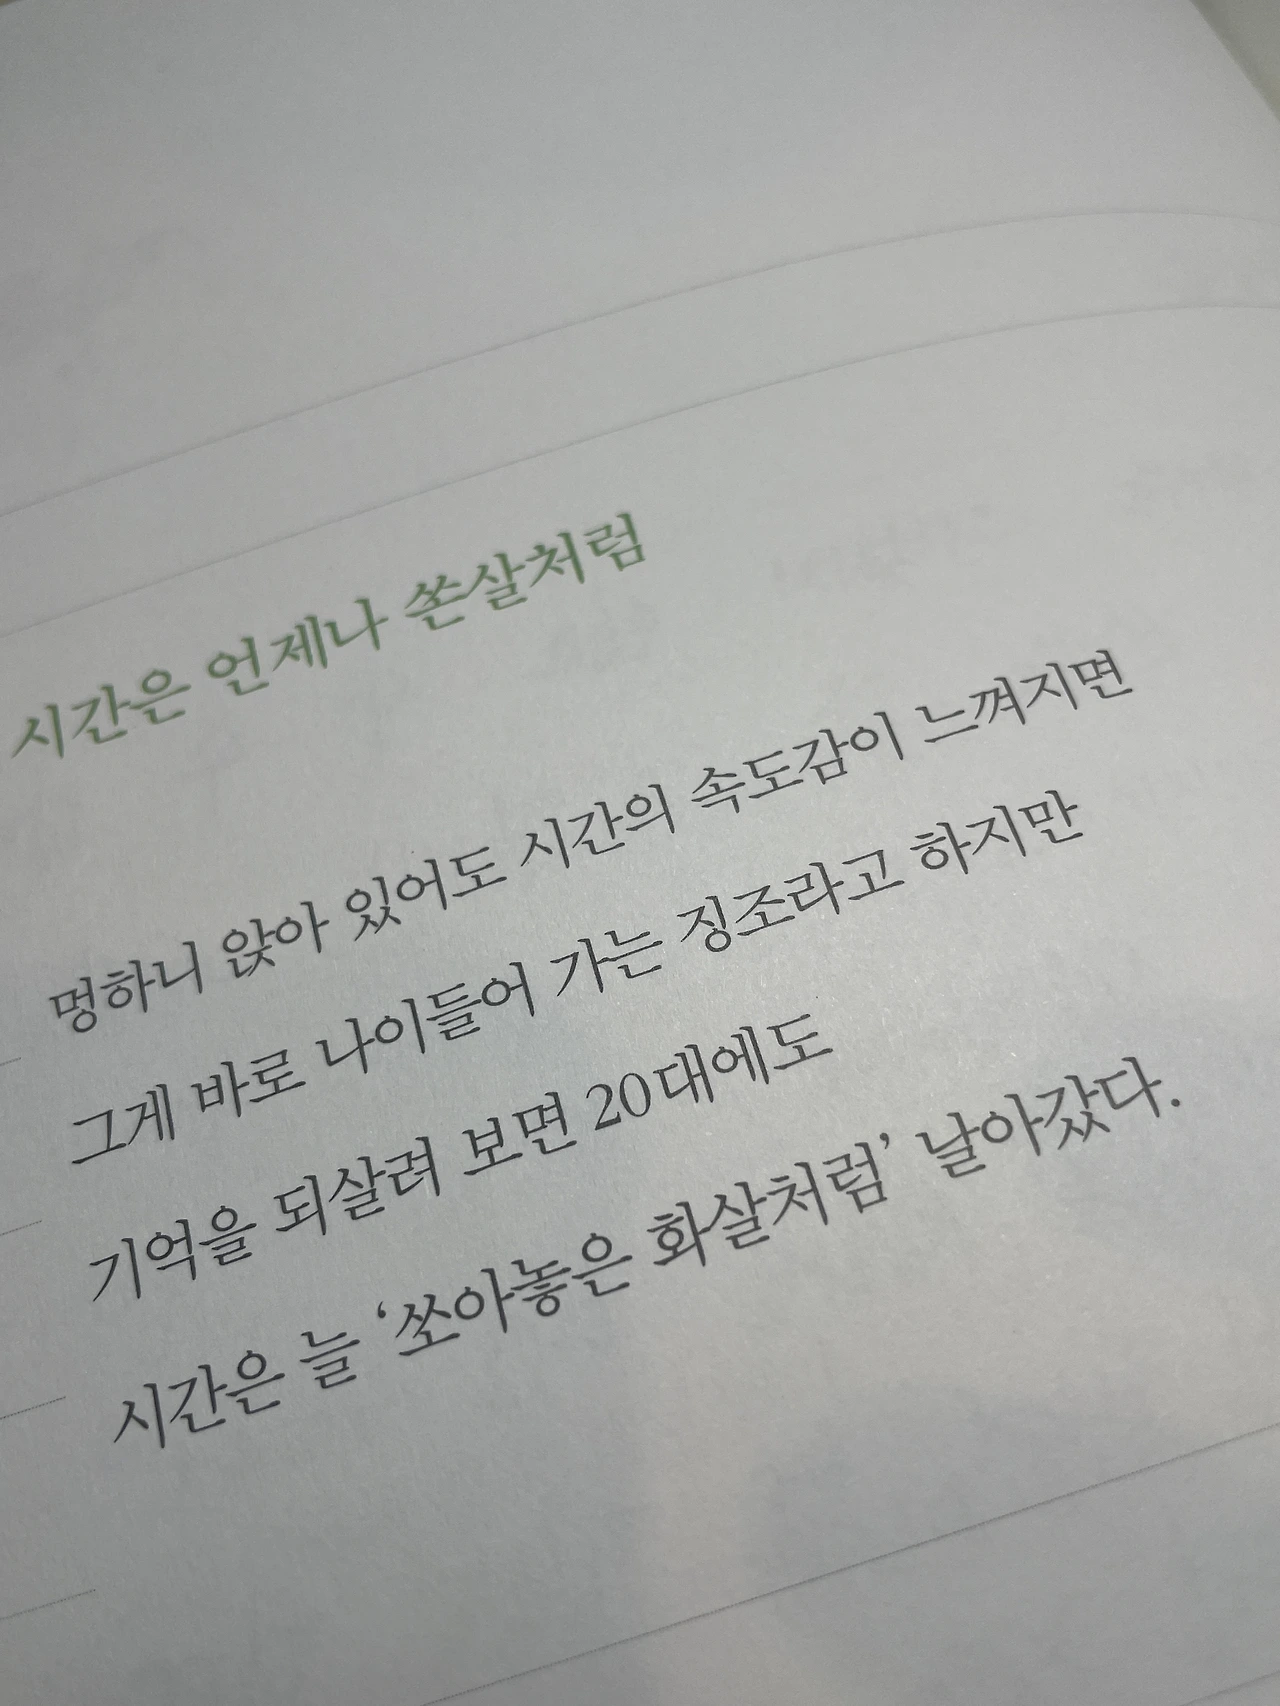 시간은 언제나 쏜살처럼
멍하니 앉아 있어도 시간의 속도감이 느껴지면
그게 바로 나이들어 가는 징조라고 하지만
기억을 되살려 보면 20대에도
시간은 늘 ‘쏘아놓은 화살처럼’ 날아갔다.